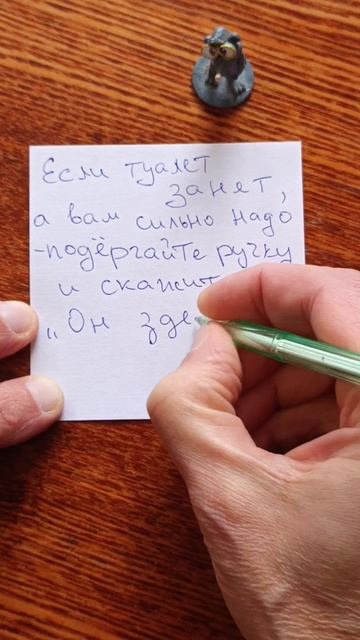 Если туалет
занят,
а вам сильно надо
-подёргайте ручку
и скажит
„Он зде